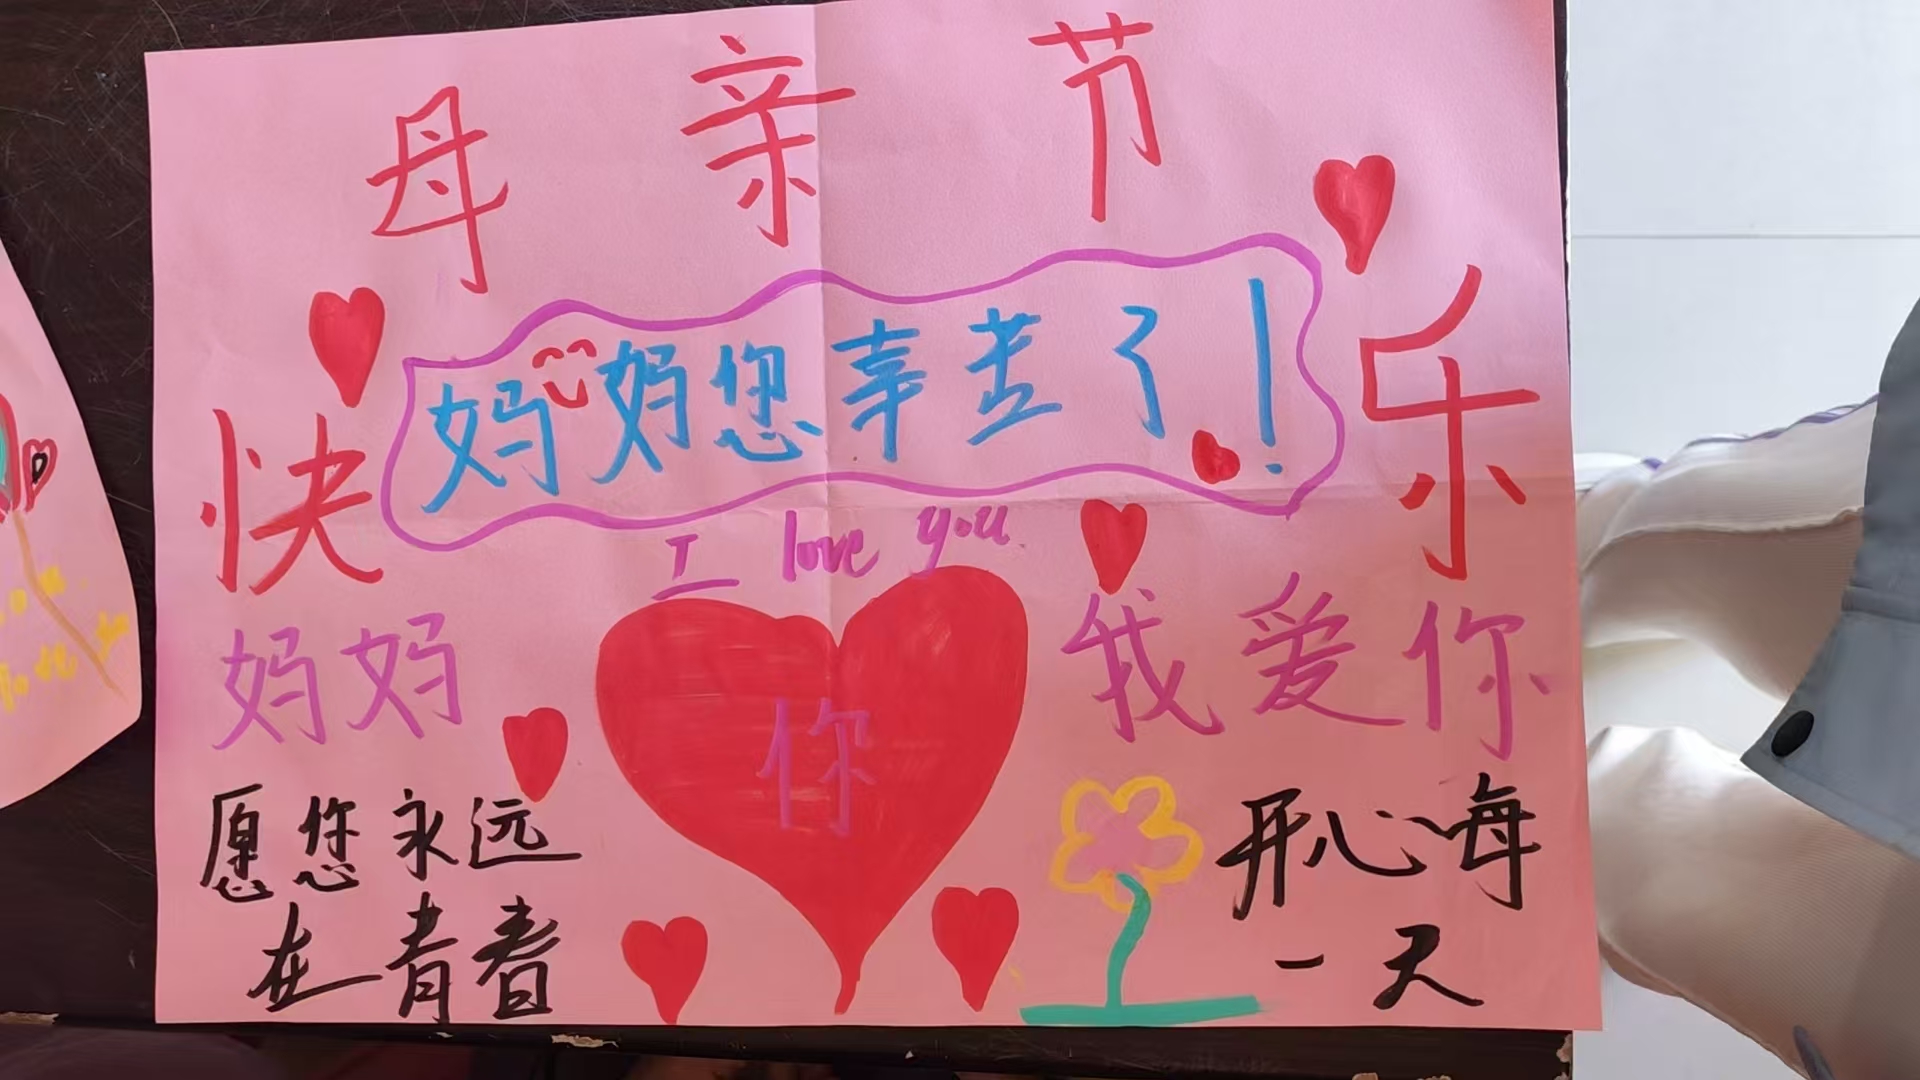 母亲节
快乐
妈妈您辛苦了!
I love you
妈妈
你
我爱你
愿您永远
在青春
开心每
一天